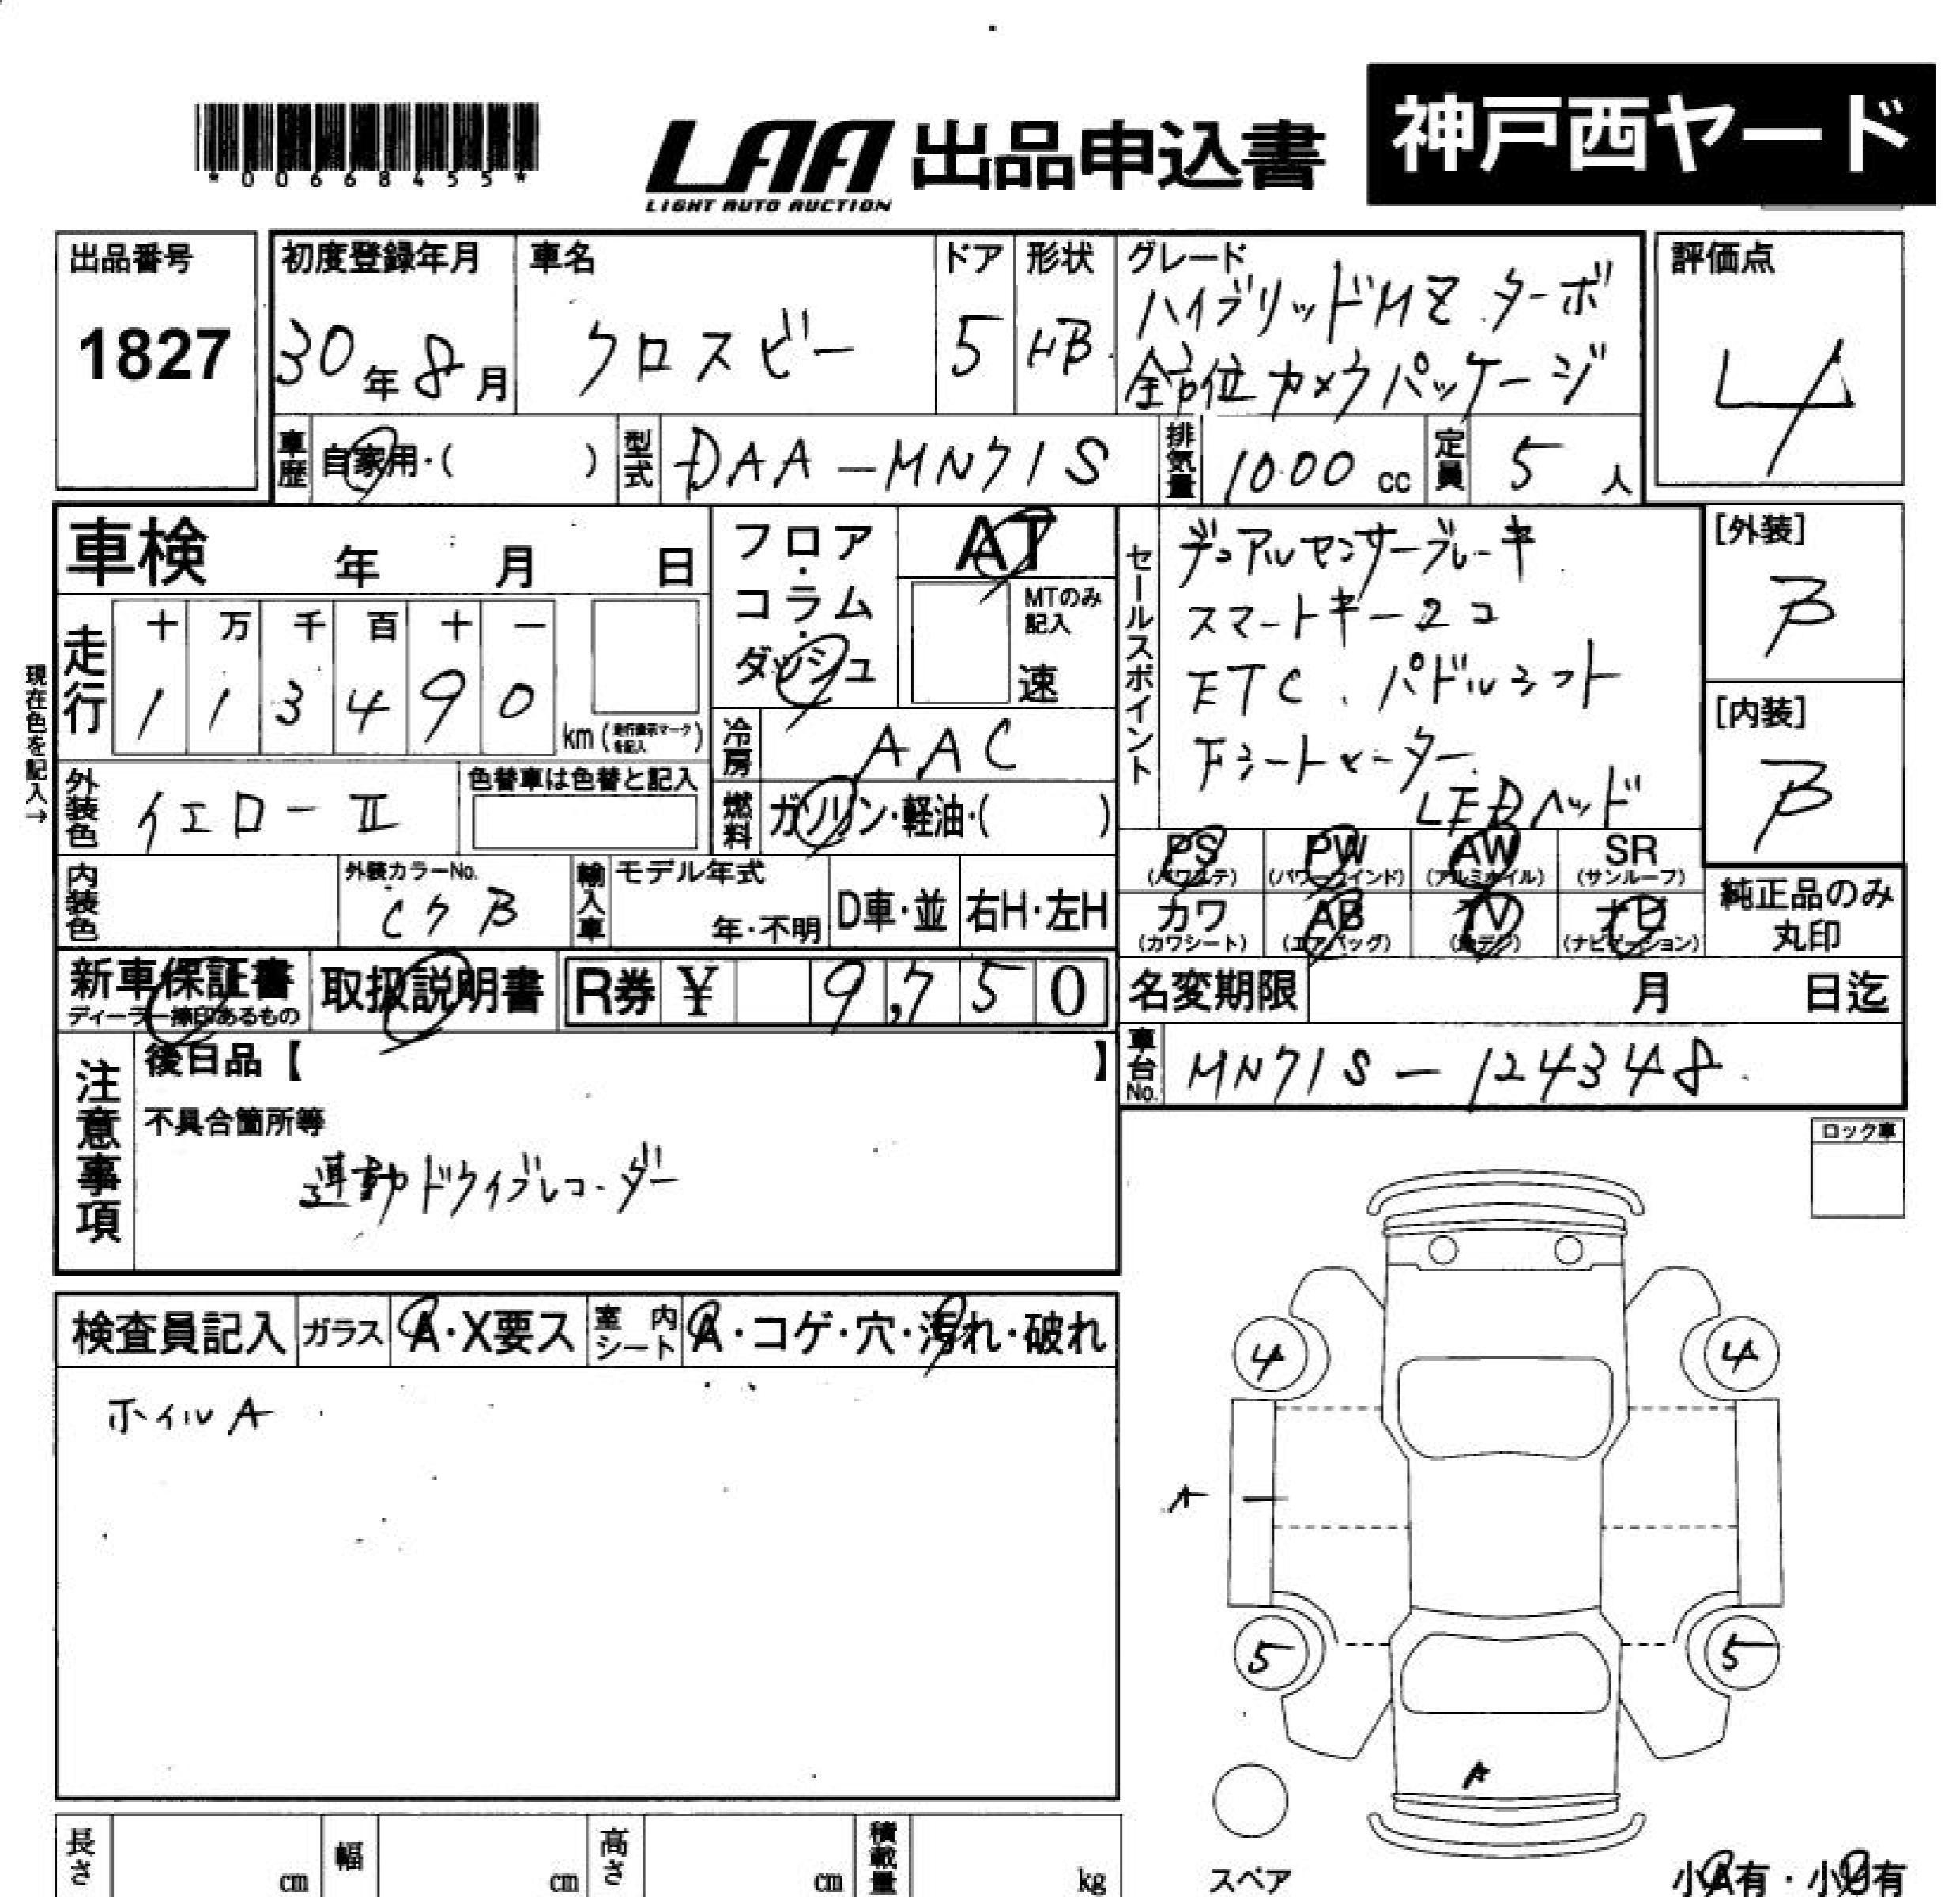 *00668455*
LAA
LIGHT AUTO AUCTION
出品申込書
神戸西ヤード
出品番号
1827
初度登録年月
30年8月
車名
クロスビー
ドア
5
形状
HB
グレード
ハイブリッドMZ ターボ
全方位カメラパッケージ
評価点
4
車歴
自家用・( )
型式
DAA-MN71S
排気量
1000 cc
定員
5 人
車検 年 月 日
フロア・コラム・ダッシュ
AT
MTのみ記入
速
セールスポイント
デュアルセンサーブレーキ
スマートキー2コ
ETC、パドルシフト
Fシートヒーター
LEDヘッド
[外装]
B
[内装]
B
現在色を記入→
走行
十 万 千 百 十 一
1 1 3 4 9 0
km(走行表示マークを記入)
冷房
AAC
外装色
イエローII
色替車は色替と記入
燃料
ガソリン・軽油・( )
PS (パワステ)
PW (パワーウインド)
AW (アルミホイル)
SR (サンルーフ)
カワ (カワシート)
AB (エアバッグ)
TV (地デジ)
ナビ (ナビゲーション)
純正品のみ
丸印
内装色
外装カラーNo.
C7B
輸入車
モデル年式
年・不明
D車・並
右H・左H
新車保証書
ディーラー捺印あるもの
取扱説明書
R券 ¥ 9,750
名変期限 月 日迄
車台No.
MN71S-124348
注意事項
後日品【 】
不具合箇所等
連動ドライブレコーダー
ロック車
検査員記入
ガラス
A・X要ス
室内シート
A・コゲ・穴・汚れ・破れ
ホイルA
4
4
A
5
5
A
スペア
長さ cm
幅 cm
高さ cm
積載量 kg
小A有・小U有